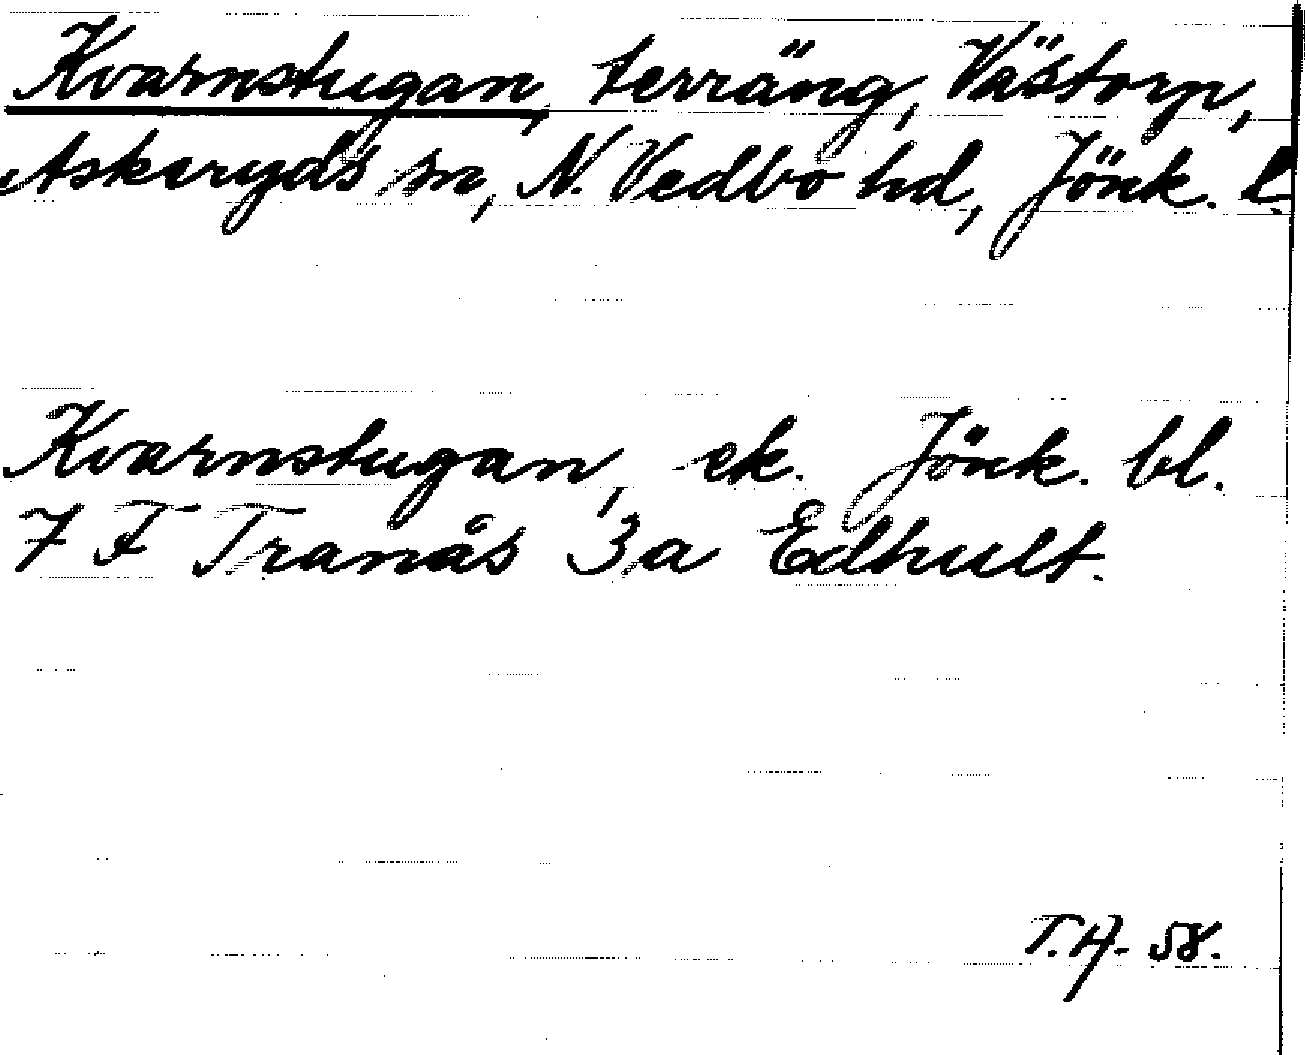 Kvarnstugan, terräng, Västorp,
Askeryds sn, N. Vedbo hd, Jönk. l.
Kvarnstugan, ek. Jönk. bl.
7 F Tranås 3a Edhult.
T.A. 58.